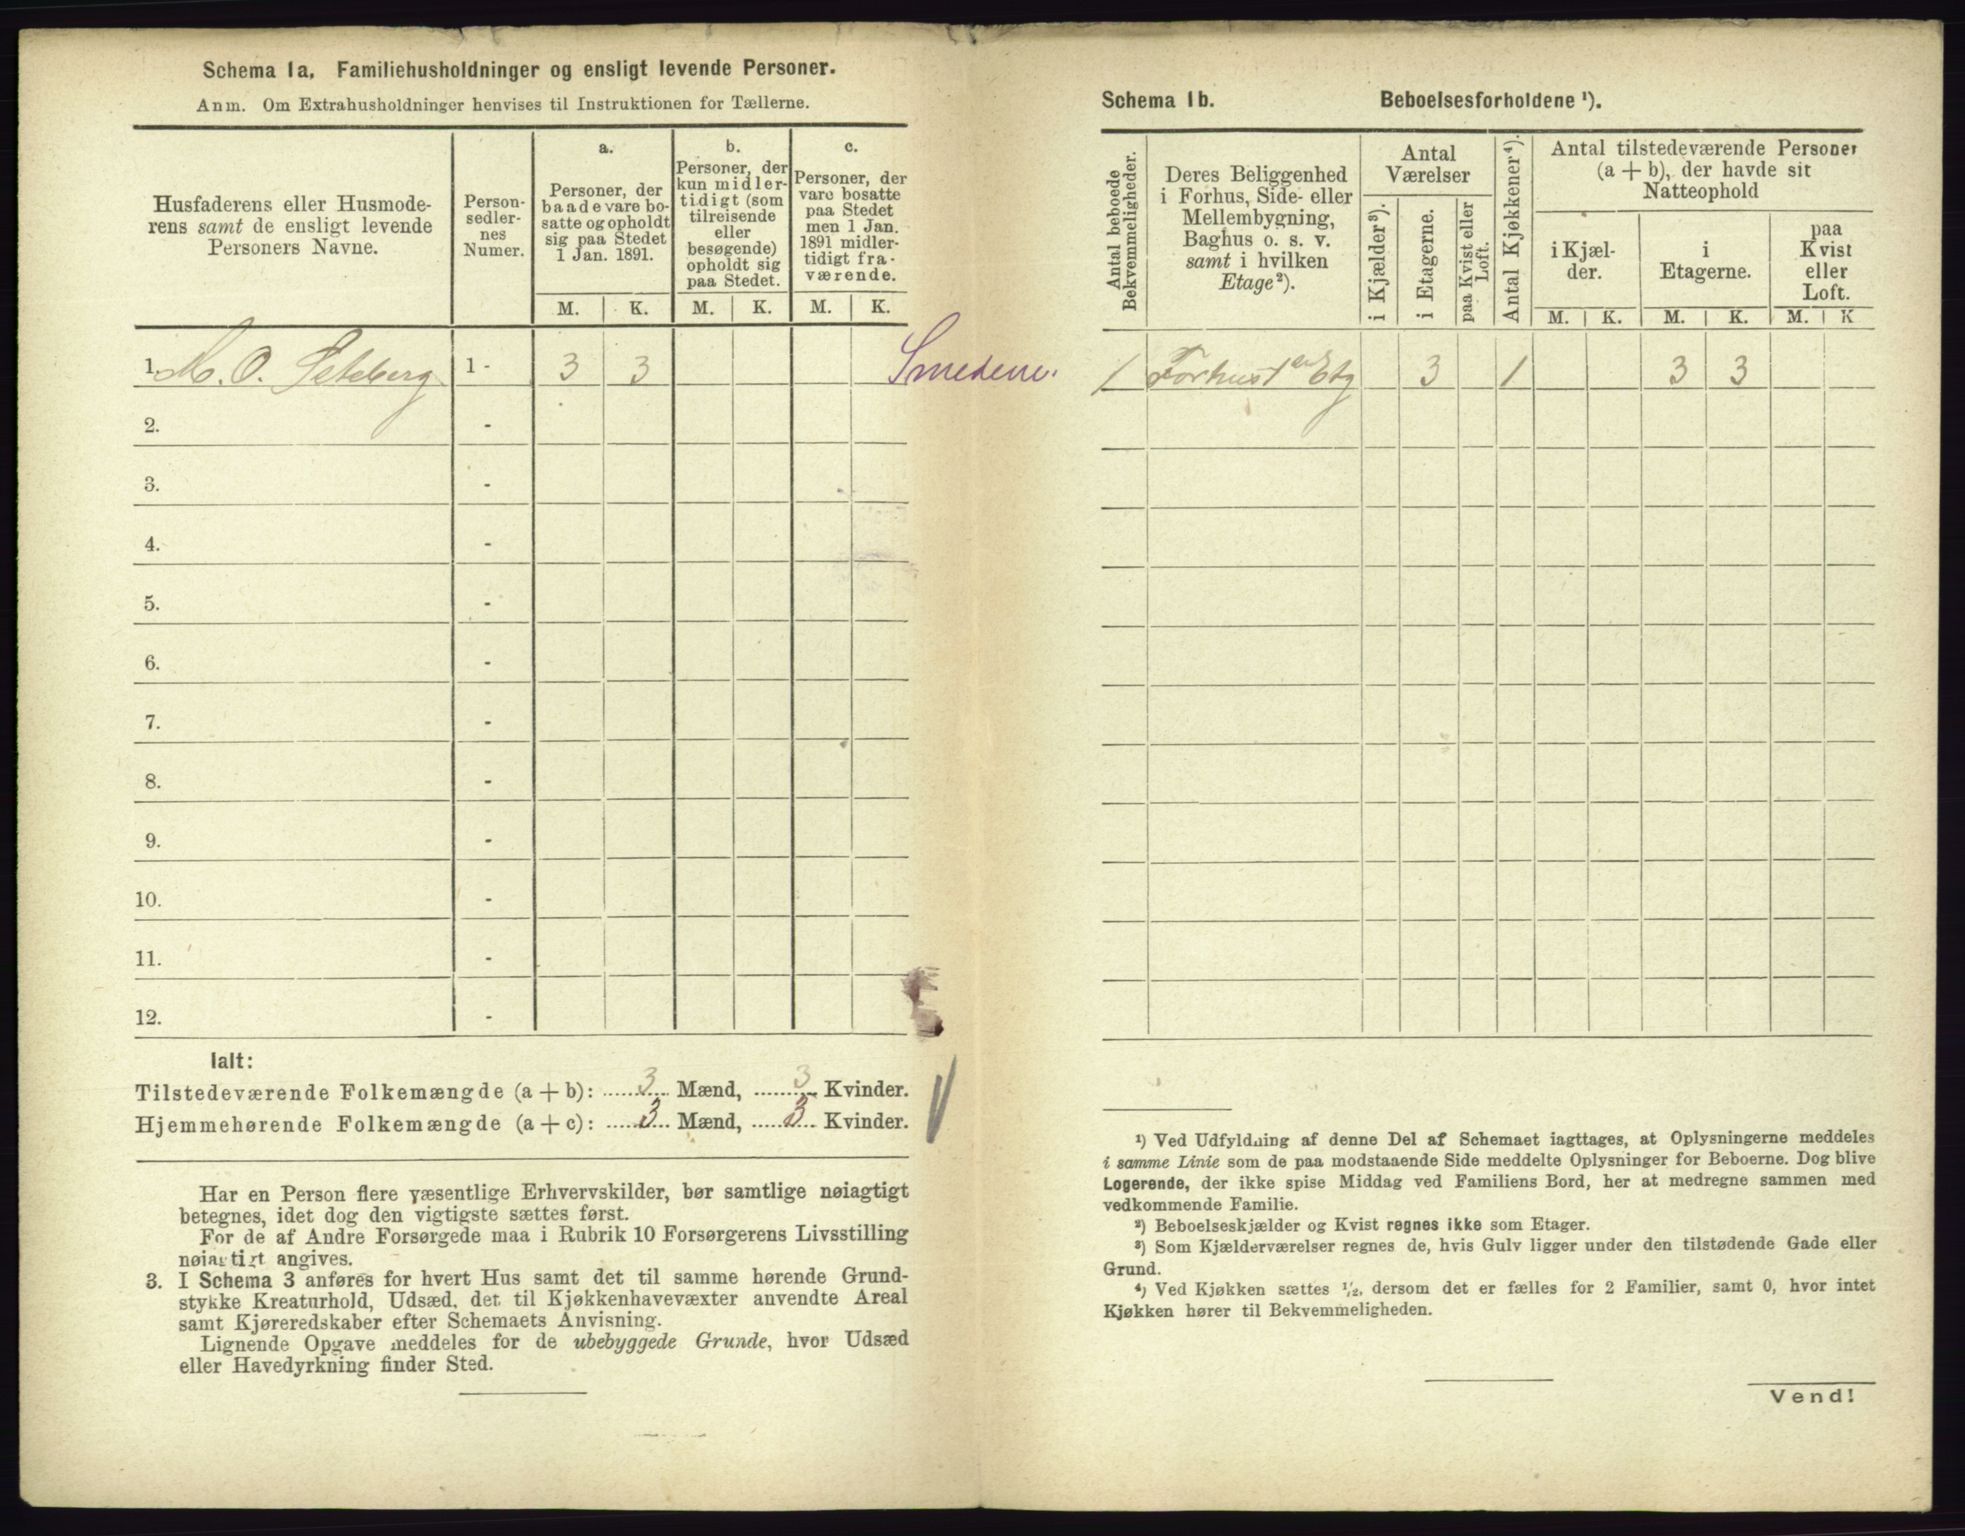 Schema 1a. Familiehusholdninger og ensligt levende Personer.
Anm. Om Extrahusholdninger henvises til Instruktionen for Tællerne.
Husfaderens eller Husmode-
rens samt de ensligt levende
Personers Navne.
Person-
sedler-
nes
Numer.
a.
Personer, der
baade vare bo-
satte og opholdt
sig paa Stedet
1 Jan. 1891.
b.
Personer, der
kun midler-
tidigt (som
tilreisende
eller
besøgende)
opholdt sig
paa Stedet.
c.
Personer, der
vare bosatte
paa Stedet
men 1 Jan.
1891 midler-
tidigt fra-
værende.
M. K. M. K. M. K.
1. M. O. Seteberg 1 - 3 3 Smedene.
2. -
3. -
4. -
5. -
6. -
7. -
8. -
9. -
10. -
11. -
12. -
Ialt:
Tilstedeværende Folkemængde (a + b): 3 Mænd, 3 Kvinder.
Hjemmehørende Folkemængde (a + c): 3 Mænd, 3 Kvinder.
Har en Person flere væsentlige Erhvervskilder, bør samtlige nøiagtigt
betegnes, idet dog den vigtigste sættes først.
For de af Andre Forsørgede maa i Rubrik 10 Forsørgerens Livsstilling
nøiagtigt angives.
3. I Schema 3 anføres for hvert Hus samt det til samme hørende Grund-
stykke Kreaturhold, Udsæd, det til Kjøkkenhavevæxter anvendte Areal
samt Kjøreredskaber efter Schemaets Anvisning.
Lignende Opgave meddeles for de ubebyggede Grunde, hvor Udsæd
eller Havedyrkning finder Sted.
Schema 1b. Beboelsesforholdene ¹).
Antal beboede
Bekvemmeligheder.
Deres Beliggenhed
i Forhus, Side- eller
Mellembygning,
Baghus o. s. v.
samt i hvilken
Etage²).
Antal
Værelser
i Kjælder³).
i Etagerne.
paa Kvist eller
Loft.
Antal Kjøkkener⁴).
Antal tilstedeværende Personer
(a + b), der havde sit
Natteophold
i Kjæl-
der.
i
Etagerne.
paa
Kvist
eller
Loft.
M. K. M. K. M. K
1 Forhus 1 en Etg 3 1 3 3
¹) Ved Udfyldning af denne Del af Schemaet iagttages, at Oplysningerne meddeles
i samme Linie som de paa modstaaende Side meddelte Oplysninger for Beboerne. Dog blive
Logerende, der ikke spise Middag ved Familiens Bord, her at medregne sammen med
vedkommende Familie.
²) Beboelseskjælder og Kvist regnes ikke som Etager.
³) Som Kjælderværelser regnes de, hvis Gulv ligger under den tilstødende Gade eller
Grund.
⁴) Ved Kjøkken sættes ½, dersom det er fælles for 2 Familier, samt 0, hvor intet
Kjøkken hører til Bekvemmeligheden.
Vend!